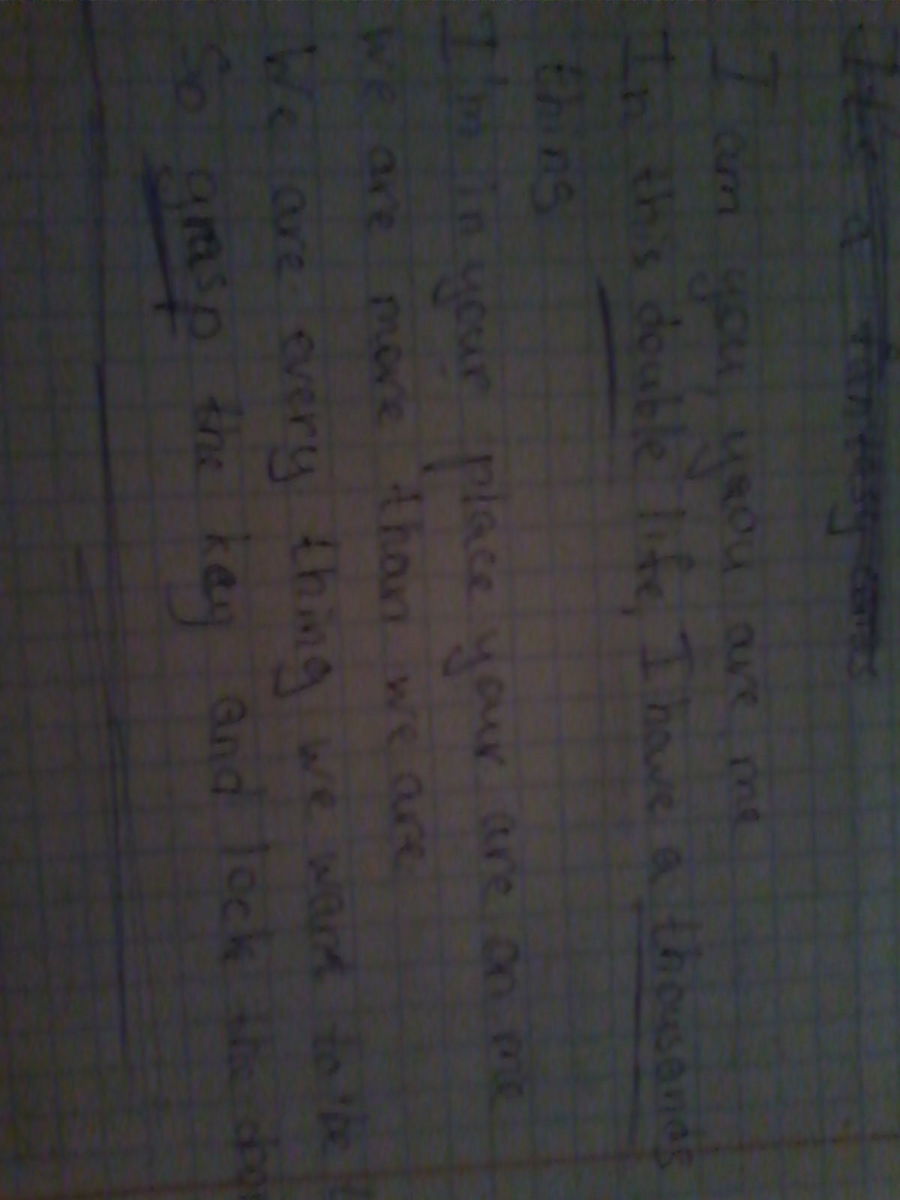 I am you, you are me
In this double life, I have a thousands
thing
I'm in your place your are on me
we are more than we are
We are every thing we want to be
So grasp the key and lock the